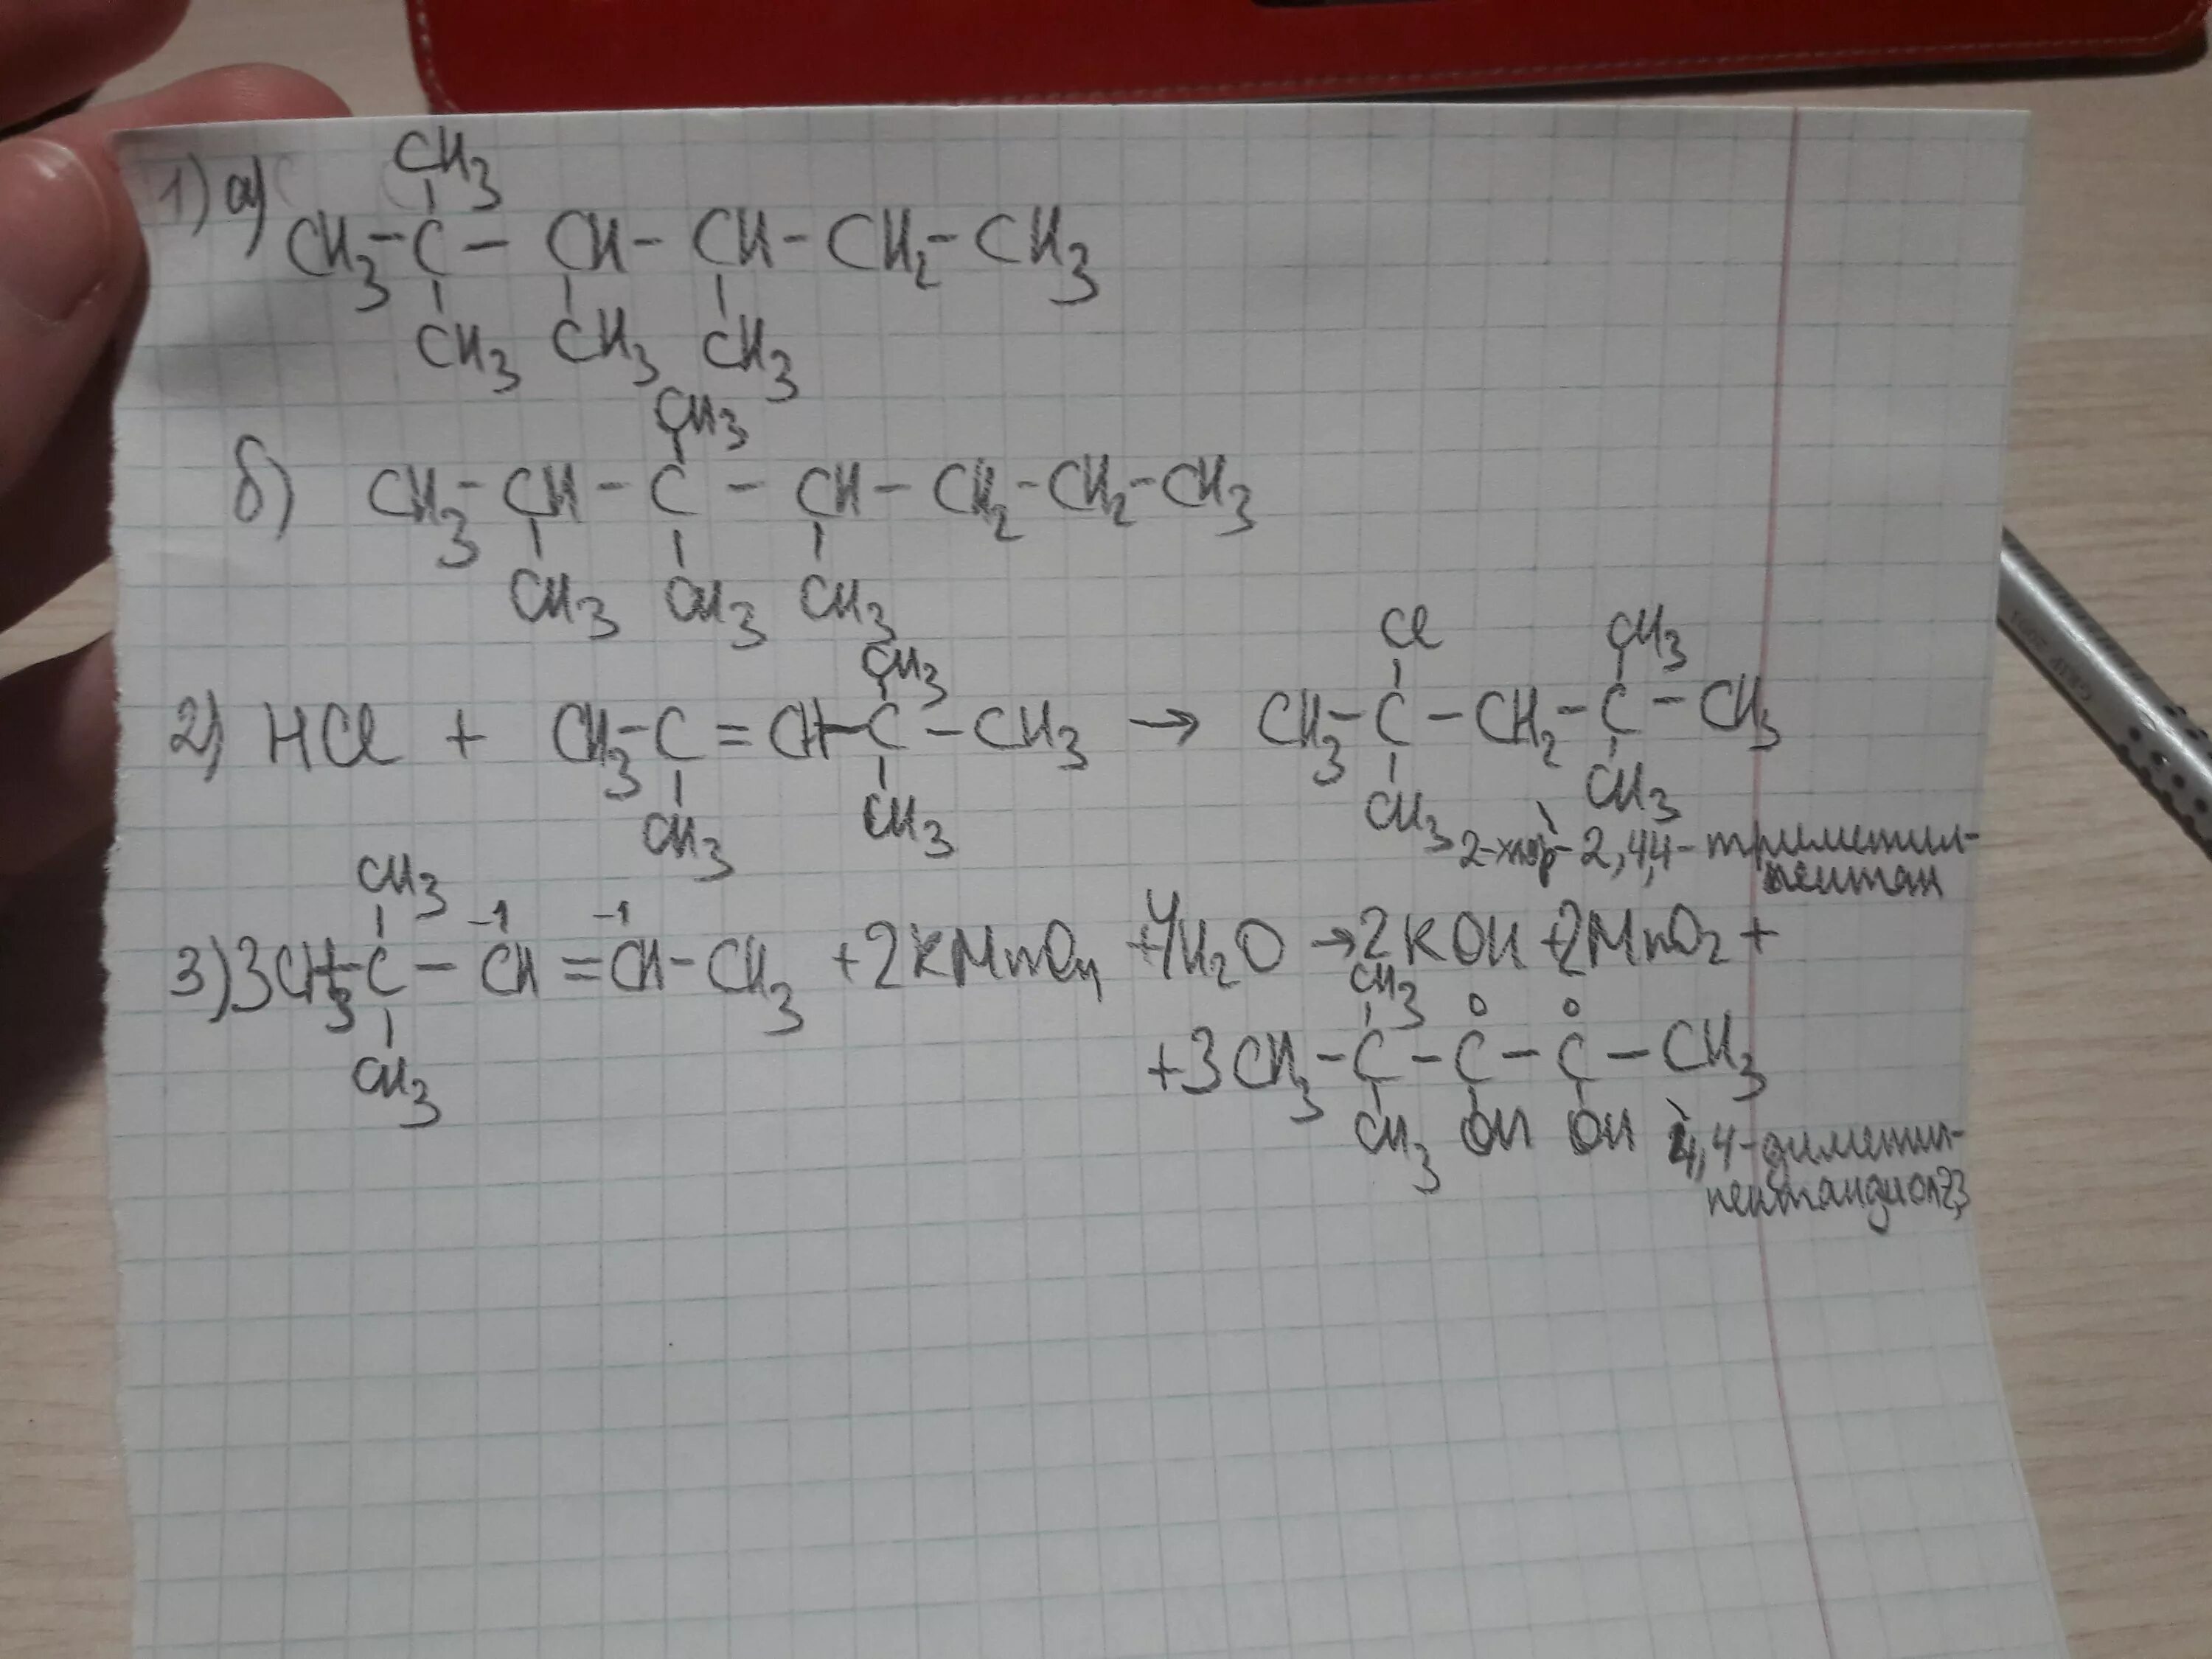 CH3
1) a) CH3-C - CH- CH-CH2-CH3
CH3 CH3 CH3
CH3
б) CH3-CH-C - CH-CH2-CH2-CH3
CH3 CH3 CH3
Cl CH3
CH3
2) HCl + CH3-C=CH-C-CH3 → CH3-C-CH2-C-CH3
CH3 CH3
CH3 CH3
2-хлор-2,4,4-триметил-
пентан
CH3 -1 -1
3) 3CH3-C - CH=CH-CH3 +2KMnO4 +4H2O →2KOH+2MnO2+
CH3
CH3 0 0
+3CH3-C-C-C-CH3
CH3 OH OH
4,4-диметил-
пентандиол2,3
GRIP 2001